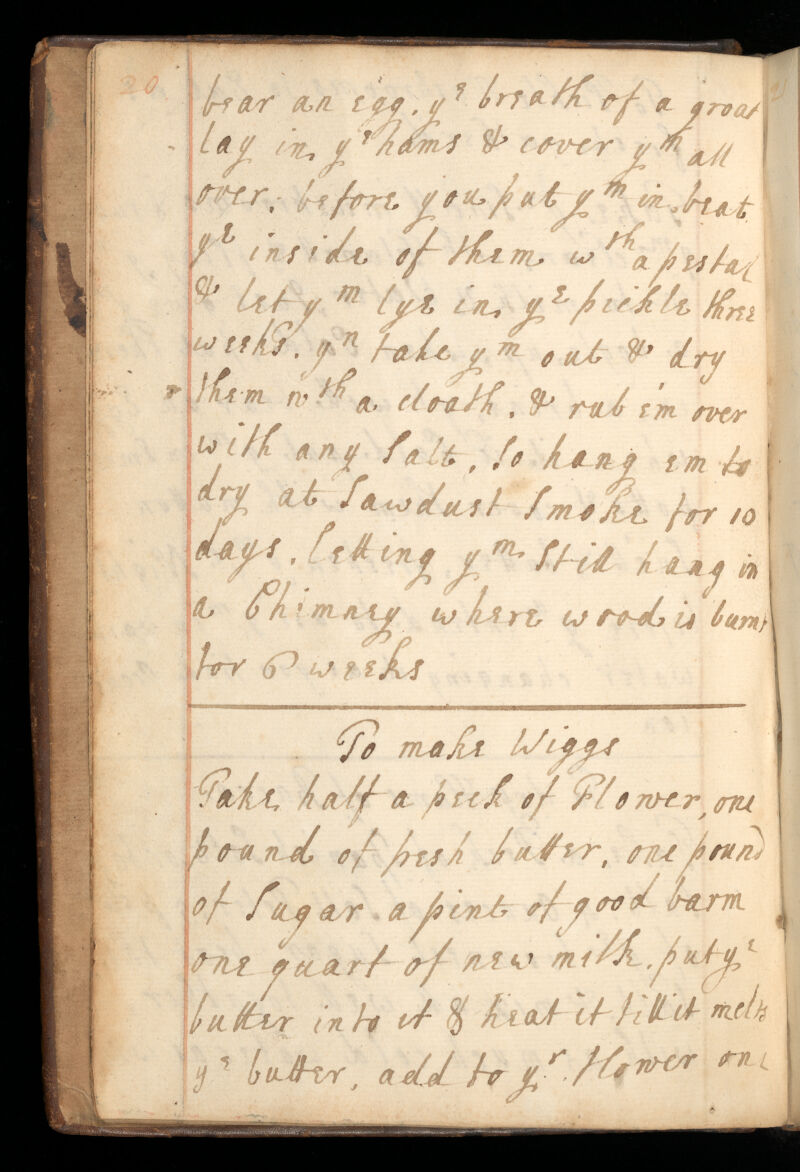 20
bear an egg. yᵉ breath of a groat
lay in yᵉ hams & cover yᵐ all
over. before you put yᵐ in beat
yᵉ inside of them wᵗʰ a pestal
& let yᵐ lye in yᵉ pickle three
weeks. yⁿ take yᵐ out & dry
them wᵗʰ a cloath. & rub e'm over
with any Salt. So hang em to
dry at Sawdust Smoke for 10
days. letting yᵐ Still hang in
a Chimney where wood is burnt
for 6 weeks
To make Wiggs
Take half a peck of Flower, one
pound of fresh butter, one pound
of Sugar. a pint of good barm
one quart of new milk. put yᵉ
butter into it & heat it till it melts
yᵉ butter, add to yʳ flower one